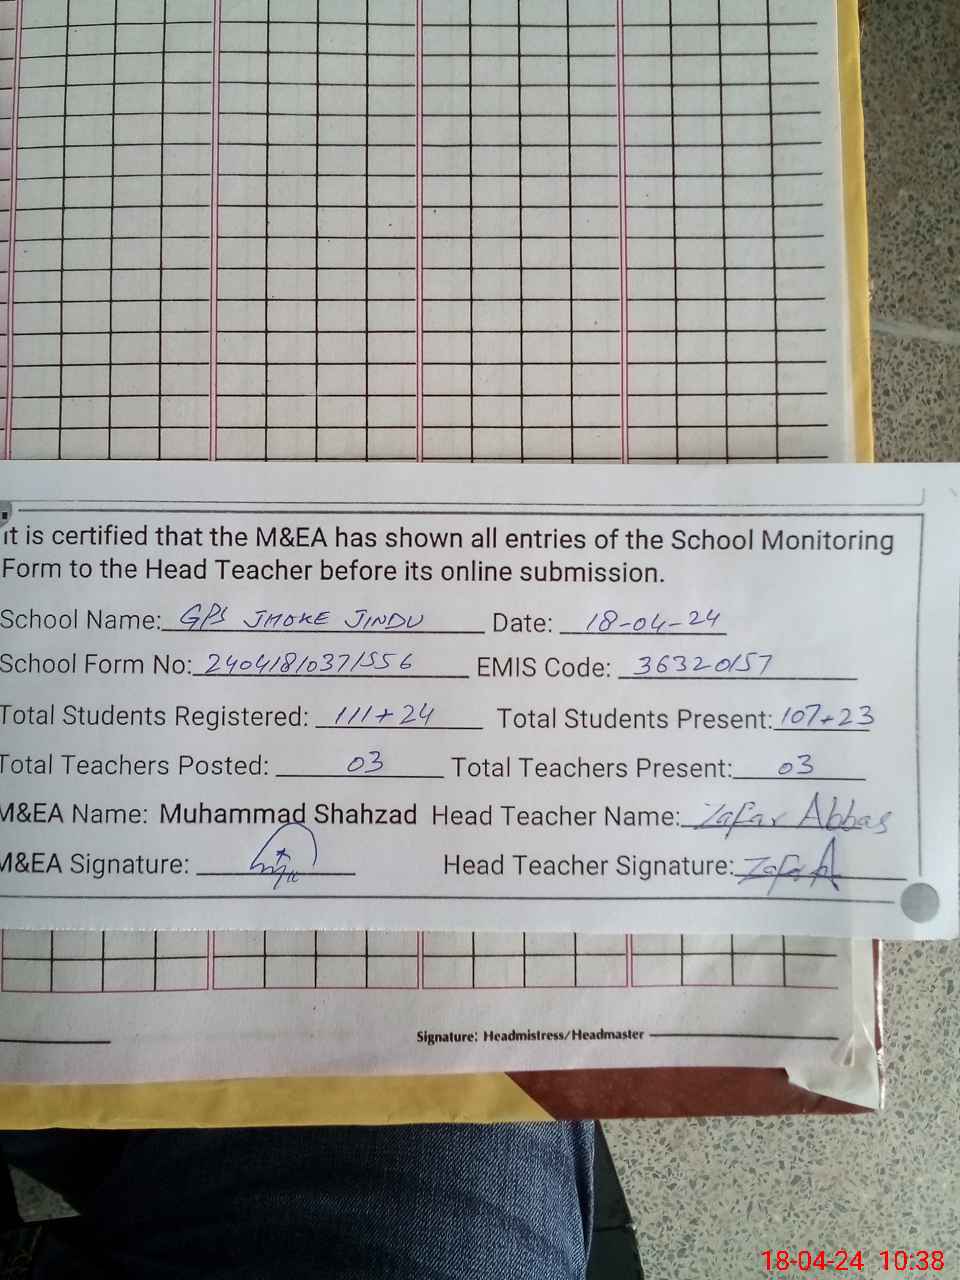 it is certified that the M&EA has shown all entries of the School Monitoring
Form to the Head Teacher before its online submission.
School Name: GPS JHOKE JINDU Date: 18-04-24
School Form No: 24041810371556 EMIS Code: 36320157
Total Students Registered: 111+24 Total Students Present: 107+23
Total Teachers Posted: 03 Total Teachers Present: 03
M&EA Name: Muhammad Shahzad Head Teacher Name: Zafar Abbas
M&EA Signature: Head Teacher Signature: Zafar A
Signature: Headmistress/Headmaster
18-04-24 10:38